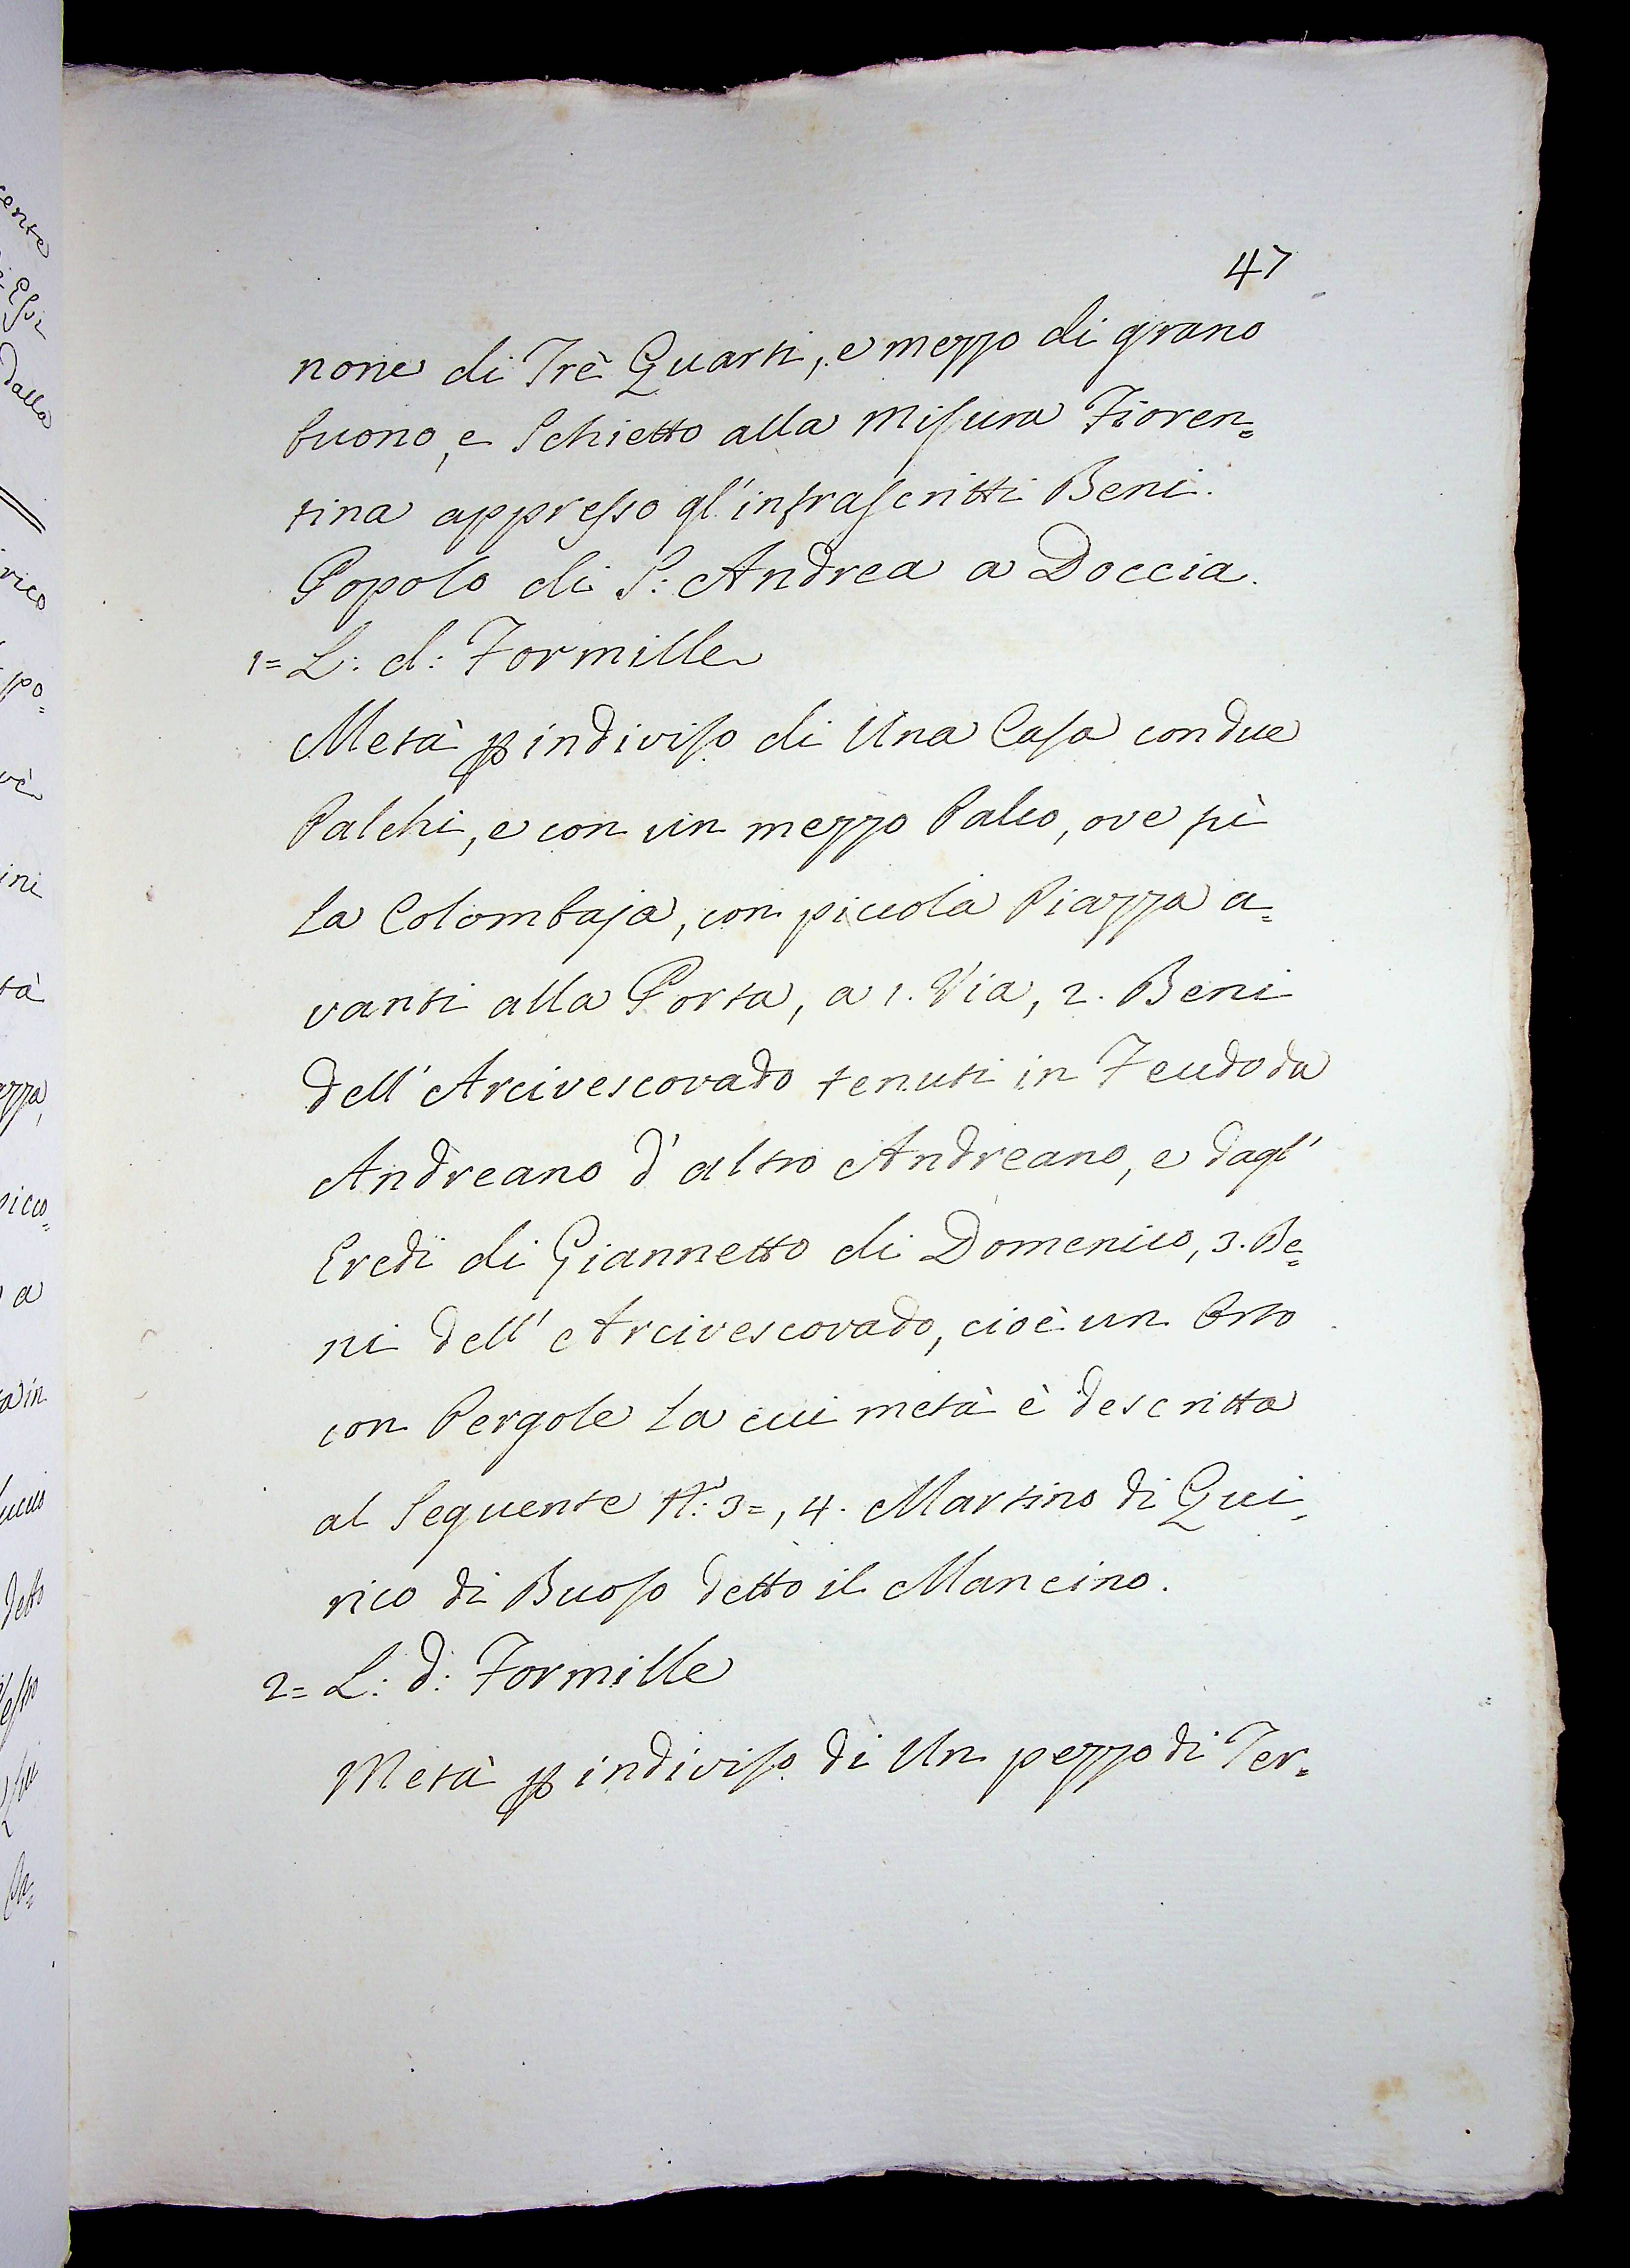 47
none di Trè Quarti, e mezzo di grano
buono, e Schietto alla Misura Fioren=
tina appresso gl'infrascritti Beni.
Popolo di S: Andrea a Doccia.
1= L: d: Formille
Metà p indiviso di Una Casa con due
Palchi, e con un mezzo Palco, ove fù
la Colombaja, con piccola Piazza a=
vanti alla Porta, a 1. Via, 2. Beni
dell'Arcivescovado tenuti in Feudo da
Andreano d'altro Andreano, e dagl'
Eredi di Giannetto di Domenico, 3. Be=
ni dell'Arcivescovado, cioè un Orto
con Pergole la cui metà è descritta
al Seguente N.: 3=, 4. Martino di Qui=
rico di Buoso detto il Mancino.
2= L: d: Formille
Metà p indiviso di Un pezzo di Ter=